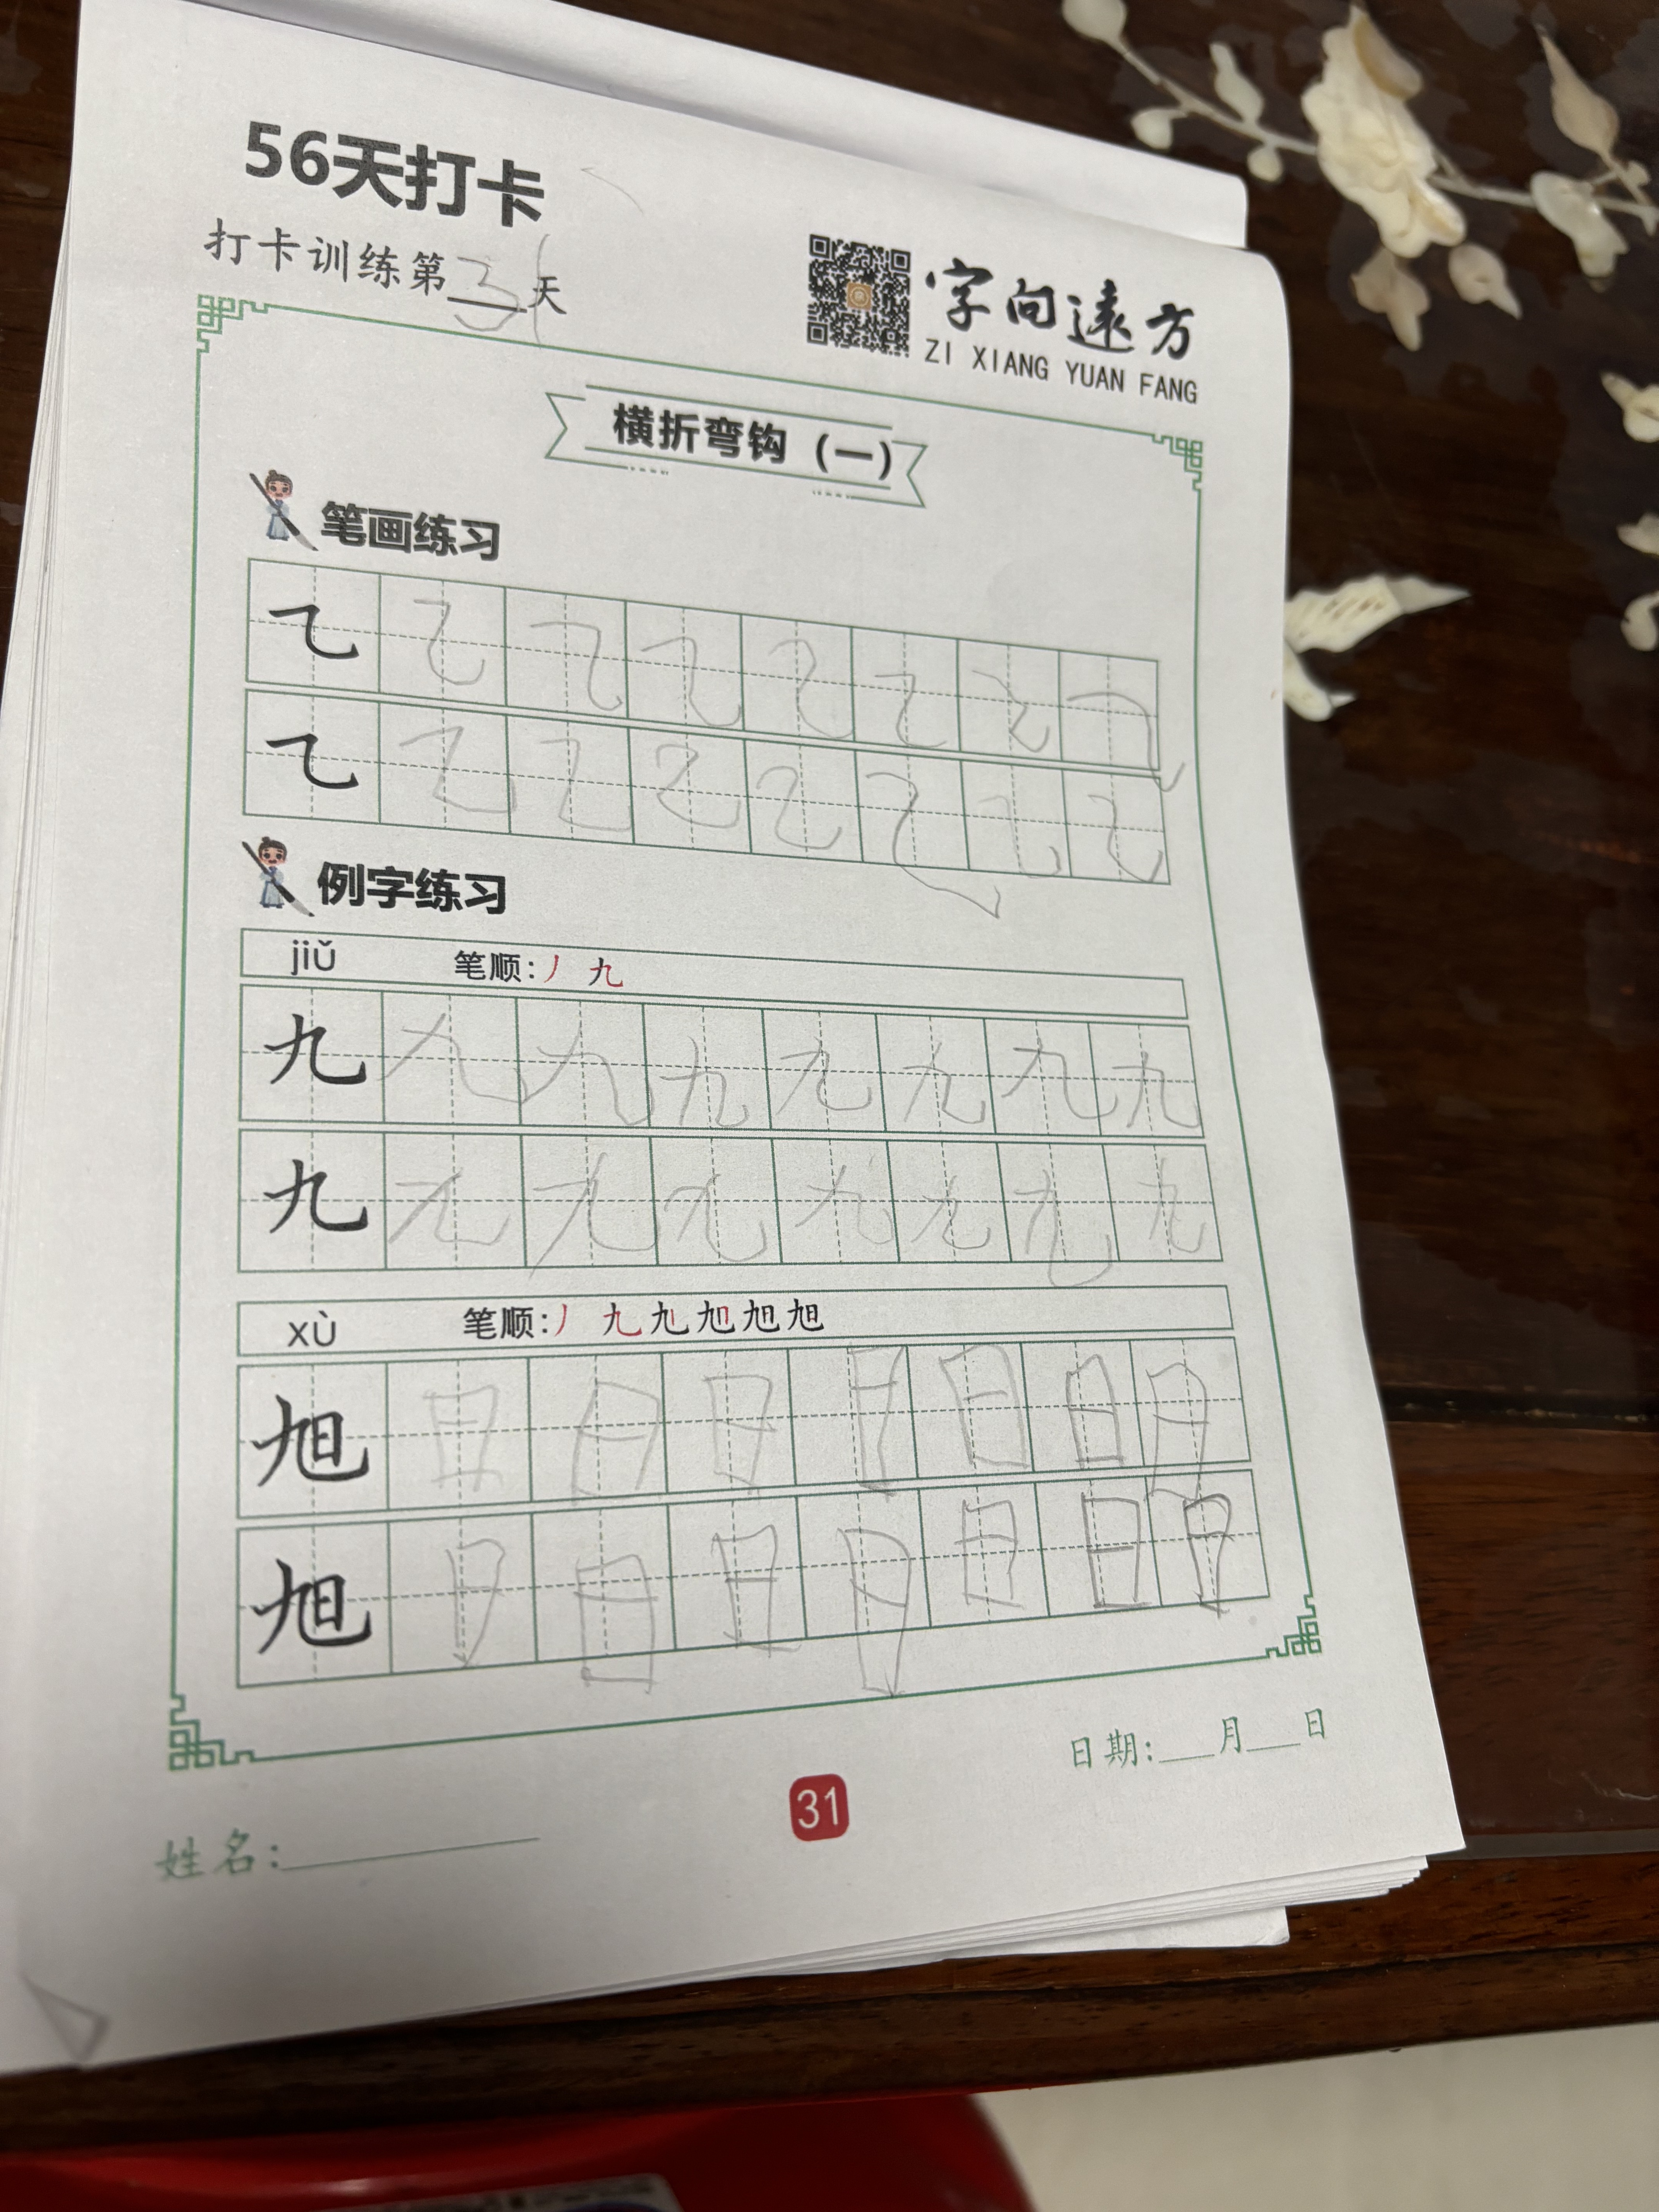 56天打卡
打卡训练第31天
字向遠方
ZI XIANG YUAN FANG
横折弯钩（一）
笔画练习
乙 乙 乙 乙 乙 乙 乙 乙
乙 乙 乙 乙 乙 乙 乙 乙
例字练习
jiǔ 笔顺:丿 九
九 九 九 九 九 九 九 九
九 九 九 九 九 九 九 九
xù 笔顺:丿 九 九丨 旭 旭 旭
旭 日 日 日 日 日 日 日
旭 日 日 日 日 日 日 日
日期:___月___日
31
姓名: